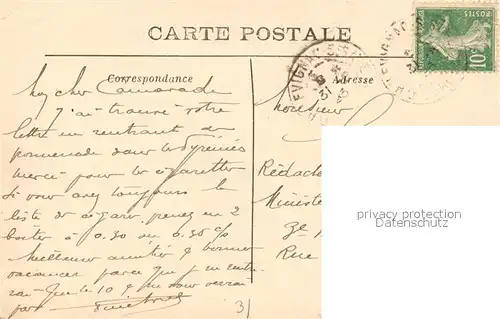 CARTE POSTALE
POSTES
10
Correspondance
Adresse
Mon cher Camarade
J'ai trouvé votre
lettre en rentrant de
promenade dans les Pyrénées
merci pour les cigarettes
si vous avez toujours la
liste de cigares prenez en 2
boîtes à 0.30 ou 0.35 c/s
Meilleures amitiés & bonnes
vacances parce que je ne rentre-
rai que le 10 & ne vous verrai
pas
31
Monsieur
Rédacte
Ministè
3e
Rue
privacy protection
Datenschutz